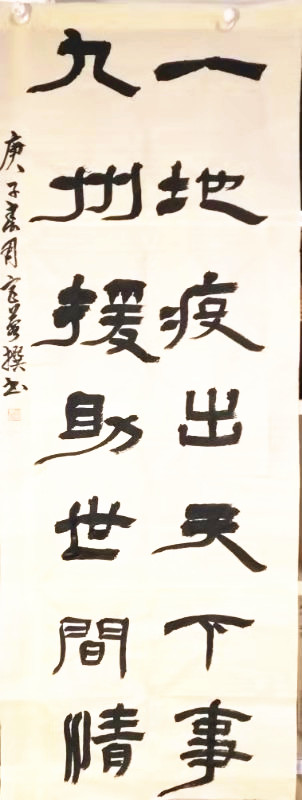 一地疫出天下事
九州援助世間情
庚子春月
撰书